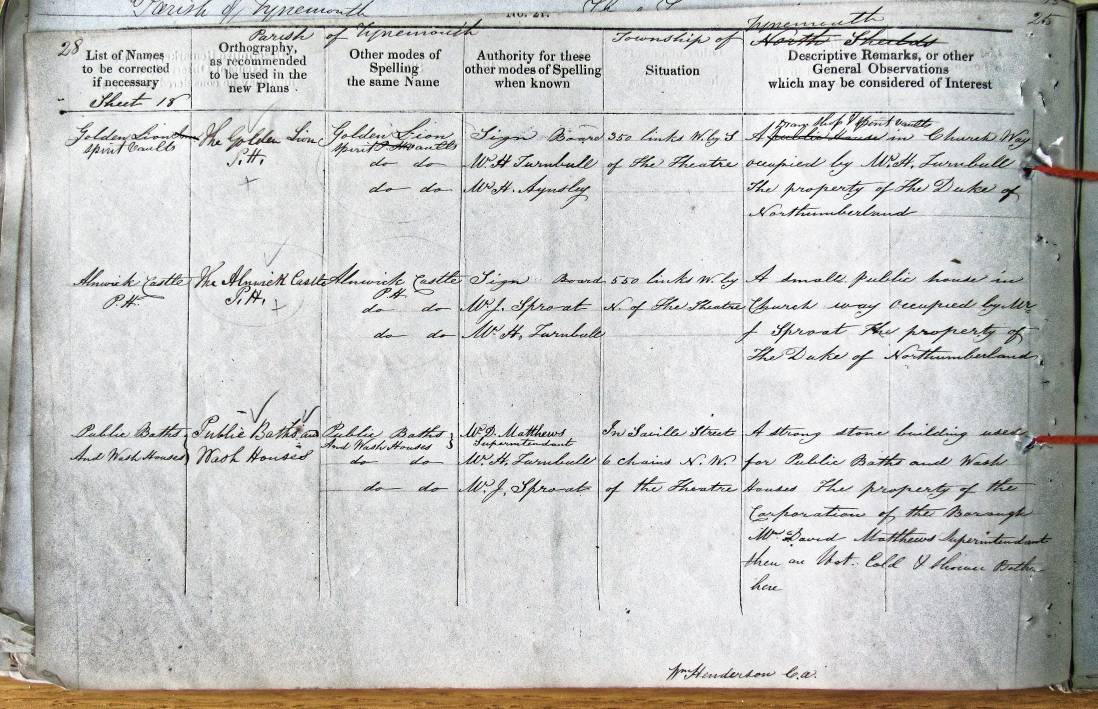 Parish of Tynemouth
No. 27.
28
Parish of Tynemouth
Township of North Shields
Tynemouth
List of Names
to be corrected
if necessary
Orthography,
as recommended
to be used in the
new Plans
Other modes of
Spelling
the same Name
Authority for these
other modes of Spelling
when known
Situation
Descriptive Remarks, or other
General Observations
which may be considered of Interest
Sheet 18
Golden Lion
Spirit Vaults
The Golden Lion
P.H.
Golden Lion
Spirit Vaults
do do
do do
Sign Board
Mr. H Turnbull
Mr. H. Aynsley
350 links W. by S
of the Theatre
Spirit Vaults
A Public House in Church Way
occupied by Mr. H. Turnbull
The property of The Duke of
Northumberland
Alnwick Castle
P.H.
The Alnwick Castle
P.H.
Alnwick Castle
P.H.
do do
do do
Sign Board
Mr. J. Sproat
Mr. H. Turnbull
550 links W. by
N. of The Theatre
A small public house in
Church way occupied by Mr
J Sproat The property of
The Duke of Northumberland
Public Baths
And Wash Houses
Public Baths and
Wash Houses
Public Baths
And Wash Houses
do do
do do
Mr. D. Matthews
Superintendant
Mr. H. Turnbull
Mr. J. Sproat
In Saville Street
6 chains N. W.
of the Theatre
A strong stone building used
for Public Baths and Wash
Houses The property of the
Corporation of the Borough
Mr. David Matthews Superintendant
there are Hot. Cold & Shower Baths
here
Wm Henderson C.a.